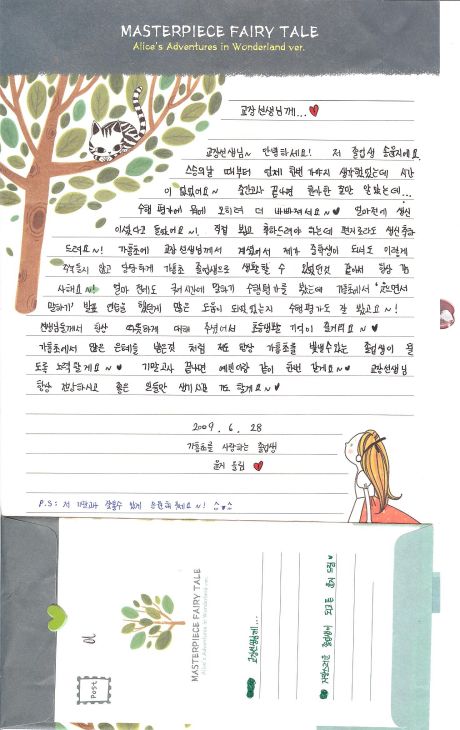 MASTERPIECE FAIRY TALE
Alice's Adventures in Wonderland ver.
교장선생님께...
교장선생님~ 안녕하세요! 저 졸업생 윤지에요.
스승의날 때부터 언제 한번 가야지 생각했었는데 시간
이 없었어요~ 중간고사 끝나면 한가할 줄만 알았는데...
수행평가에 몸에 오히려 더 바빠져서요~ 얼마전에 생신
이셨다고 들었어요~! 직접 뵙고 축하드려야 하는데 편지로라도 생신축하
드려요~! 가동초에 교장선생님께서 계셨어서 제가 중학생이 되어도 이렇게
주눅들지 않고 당당하게 가동초 졸업생으로 생활할 수 있었던것 같아서 항상 감
사해요~! 얼마 전에도 국어시간에 말하기 수행평가를 봤는데 가동초에서
말하기' 발표 연습을 했던게 많은 도움이 되었었는지 수행평가도 잘 봤고요~!
선생님들께서 항상 따뜻하게 대해 주셔서 초등생활 기억이 그리워요~
가동초에서 많은 은혜를 받은것 처럼 저도 항상 가동초를 빛낼수있는 졸업생이 될
도록 노력할게요~ 기말고사 끝나면 애들이랑 같이 한번 갈게요~ 교장선생님
항상 건강하시고 좋은 일들만 생기시길 기도 할게요~
2009. 6. 28
가동초를 사랑하는 졸업생
윤지 올림
P.S: 저 기말고사 잘볼수 있게 응원해주세요~!
Post
MASTERPIECE FAIRY TALE
Alice's Adventures in Wonderland ver.
교장선생님께...
자랑스러운 졸업생이 되고픈 윤지 드림